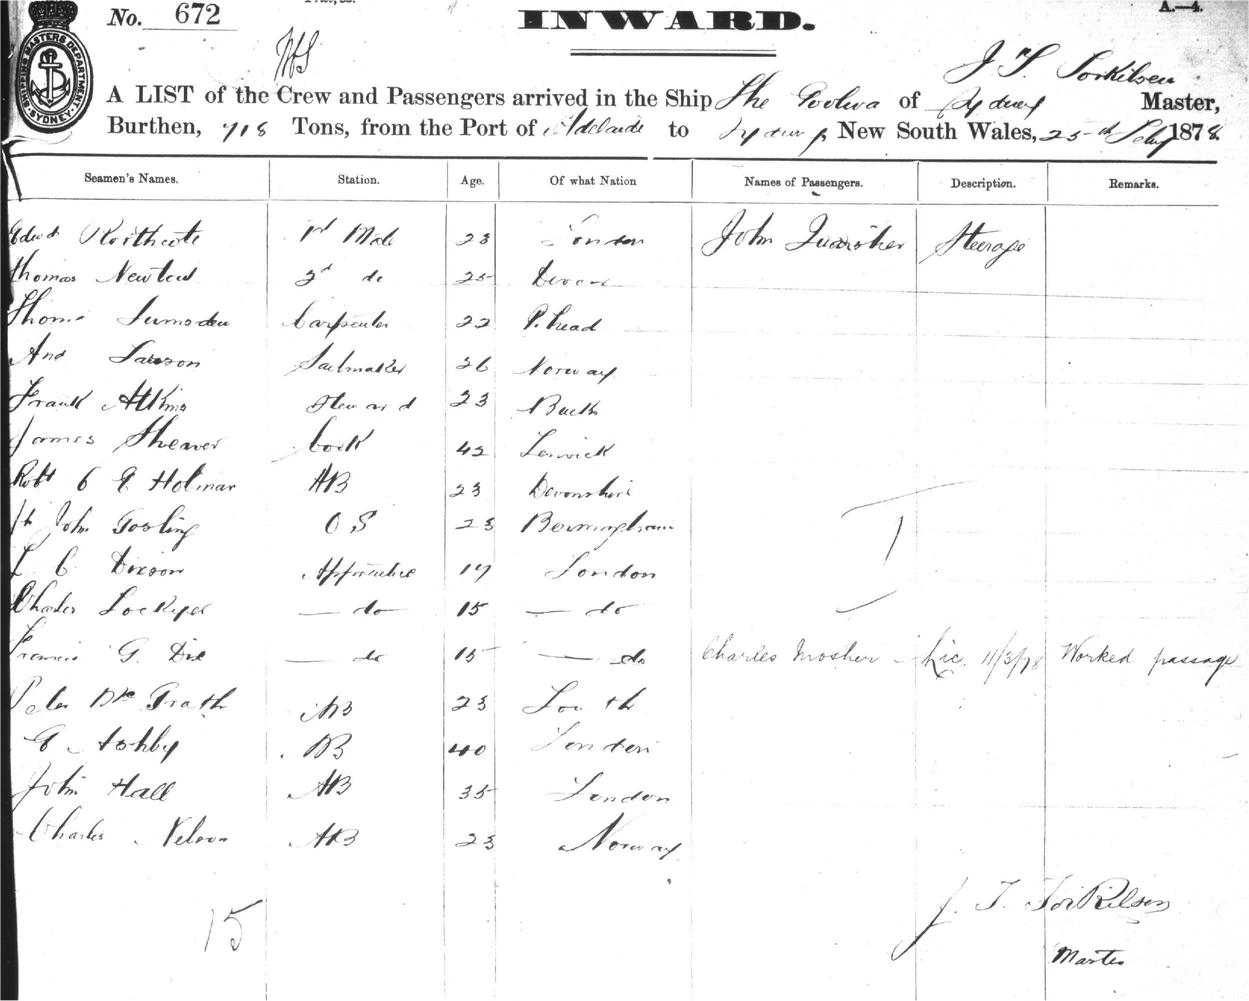 No. 672
INWARD.
A.—4.
SHIPPING MASTERS DEPARTMENT SYDNEY
J T Torkilsen
A LIST of the Crew and Passengers arrived in the Ship The Goolwa of Sydney Master,
Burthen, 718 Tons, from the Port of Adelaide to Sydney New South Wales, 25th Feby 1878
Seamen's Names. Station. Age. Of what Nation Names of Passengers. Description. Remarks.
Edwd Northcote 1st Mate 23 London John Steerage
Thomas Newton 2d do 25 Devon
Thoms Lumsden Carpenter 22 P.head
And Lawson Sailmaker 26 Norway
Frank Atkins Steward 23 Bucks
James Shearer Cook 42 Lerwick
Robt C G Holman AB 23 Devonshire
John Gosling OS 23 Bermingham
L C Dixson Apprentice 17 London
Charles Lockyer — do 15 — do
Francis G. Dix — do 15 — do Charles Mosher — Lic. 11/3/78 Worked passage
Peter McGrath AB 23 Louth
G Ashby AB 40 London
John Hall AB 35 London
Charles Nelson AB 23 Norway
15
J. T. Torkilsen
Master